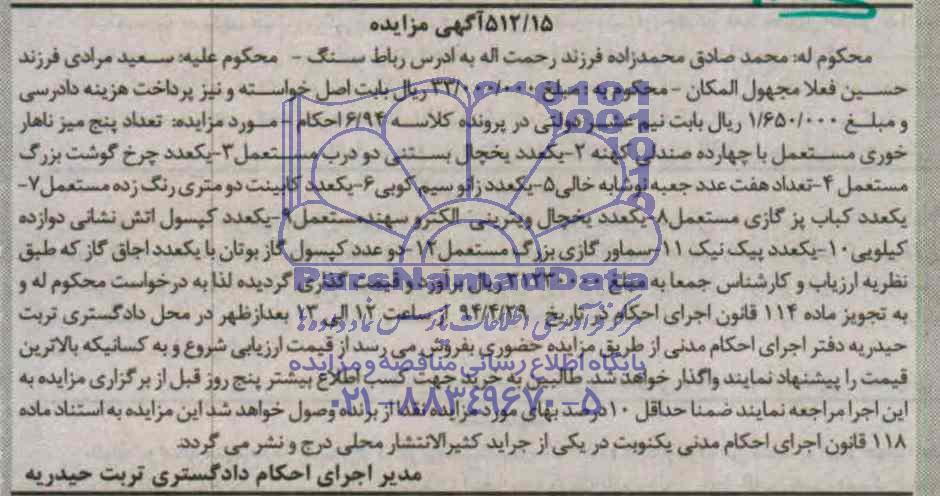 ۵۱۲/۱۵آگهی مزایده
محکوم له: محمد صادق محمدزاده فرزند رحمت اله به ادرس رباط سنگ - محکوم علیه: سعید مرادی فرزند
حسین فعلا مجهول المکان - محکوم به : مبلغ ۳۳/۰۰۰/۰۰۰ ریال بابت اصل خواسته و نیز پرداخت هزینه دادرسی
و مبلغ ۱/۶۵۰/۰۰۰ ریال بابت نیم عشر دولتی در پرونده کلاسه ۶/۹۴ احکام - مورد مزایده: تعداد پنج میز ناهار
خوری مستعمل با چهارده صندلی کهنه ۲-یکعدد یخچال بستنی دو درب مستعمل۳-یکعدد چرخ گوشت بزرگ
مستعمل ۴-تعداد هفت عدد جعبه نوشابه خالی۵-یکعدد زانو سیم کوبی۶-یکعدد کابینت دو متری رنگ زده مستعمل۷-
یکعدد کباب پز گازی مستعمل۸-یکعدد یخچال ویترینی الکترو سهندمستعمل۹-یکعدد کپسول اتش نشانی دوازده
کیلویی۱۰-یکعدد پیک نیک ۱۱-سماور گازی بزرگ مستعمل۱۲-دو عدد کپسول گاز بوتان با یکعدد اجاق گاز که طبق
نظریه ارزیاب و کارشناس جمعا به مبلغ ریال برآورد و قیمت گذاری گردیده لذا به درخواست محکوم له و
به تجویز ماده ۱۱۴ قانون اجرای احکام در تاریخ ۹۴/۴/۲۹ از ساعت ۱۲ الی ۱۳ بعدازظهر در محل دادگستری تربت
حیدریه دفتر اجرای احکام مدنی از طریق مزایده حضوری بفروش می رسد از قیمت ارزیابی شروع و به کسانیکه بالاترین
قیمت را پیشنهاد نمایند واگذار خواهد شد. طالبین به خرید جهت کسب اطلاع بیشتر پنج روز قبل از برگزاری مزایده به
این اجرا مراجعه نمایند ضمنا حداقل ۱۰درصد بهای مورد مزایده نقدا از برنده وصول خواهد شد این مزایده به استناد ماده
۱۱۸ قانون اجرای احکام مدنی یکنوبت در یکی از جراید کثیرالانتشار محلی درج و نشر می گردد.
مدیر اجرای احکام دادگستری تربت حیدریه
ParsNamadData
مرکز فرآوری اطلاعات پارس نماد داده ها
پایگاه اطلاع رسانی مناقصه و مزایده
۰۲۱-۸۸۳۴۹۶۷۰-۵